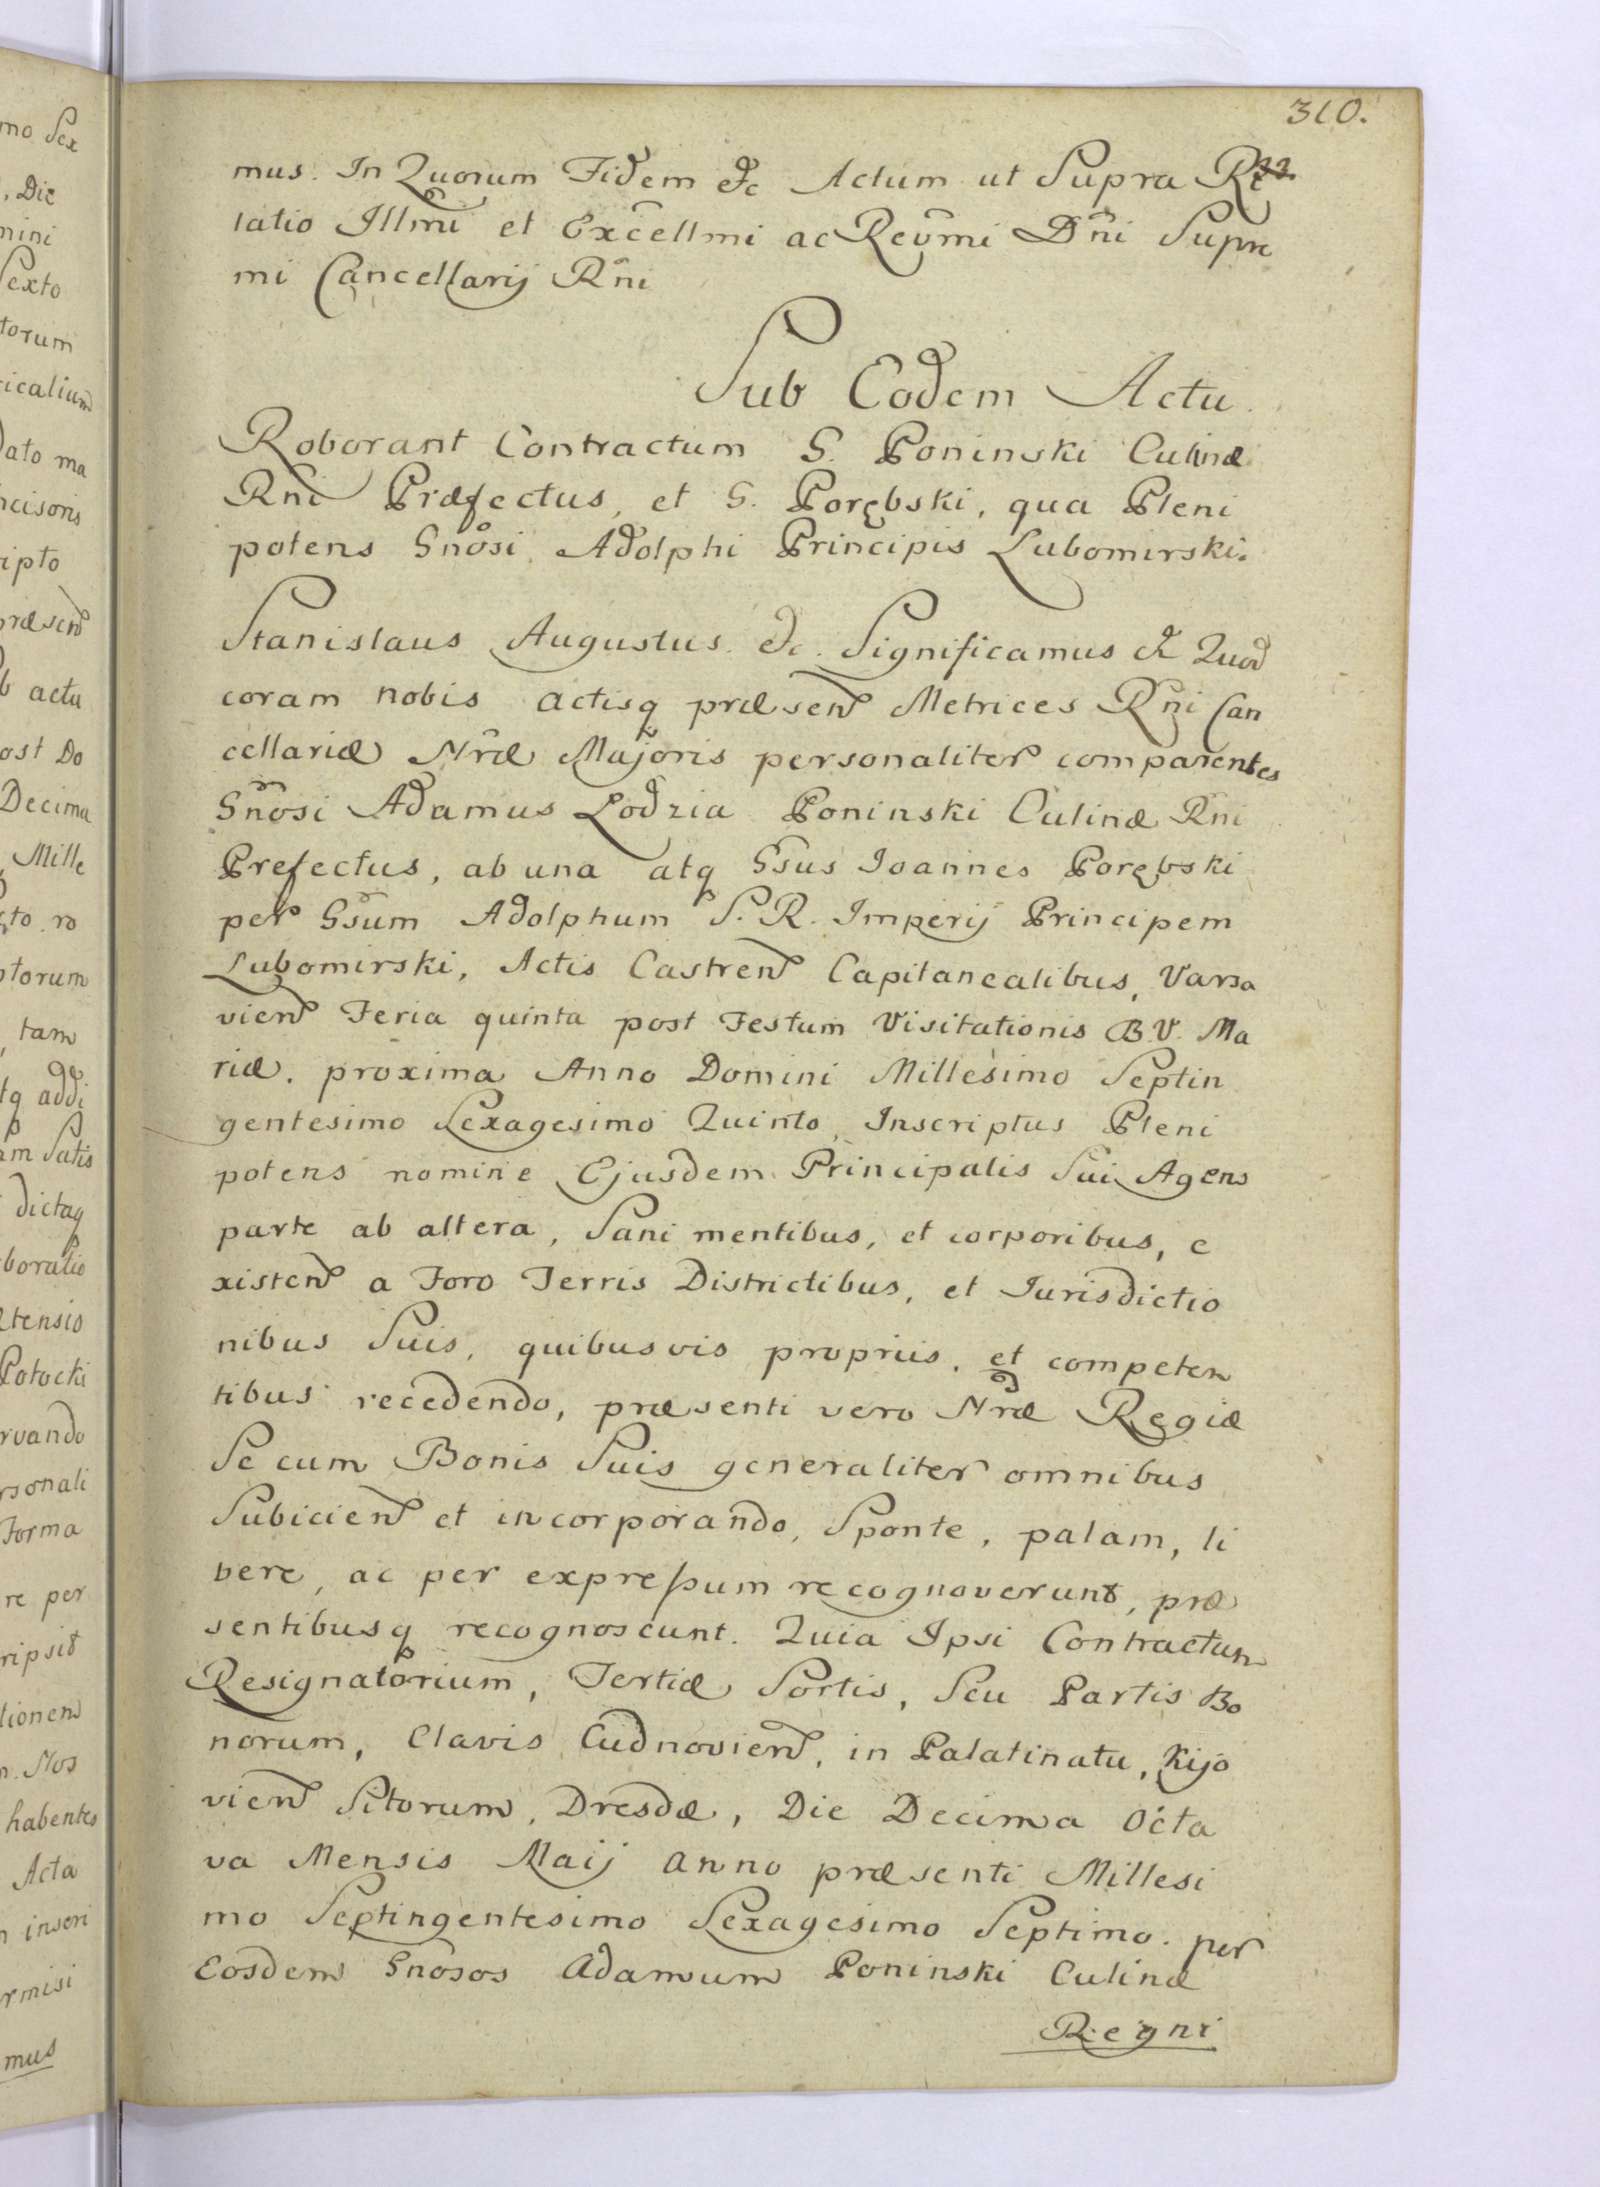 310.
mus. In Quorum Fidem etc Actum ut Supra Re
latio Illmi et Excellmi ac Revmi Dni Supre
mi Cancellarij Rni
Sub Eodem Actu
Roborant Contractum G. Poninski Culinæ
Rni Præfectus, et G. Porębski, qua Pleni
potens Gnosi Adolphi Principis Lubomirski.
Stanislaus Augustus. etc. Significamus etc Quod
coram nobis actisq præsen Metrices Rni Can
cellariæ Nræ Majoris personaliter comparentes
Gnosi Adamus Lodzia Poninski Culinæ Rni
Prefectus, ab una atq Gsus Ioannes Porębski
per Gsum Adolphum S. R. Imperij Principem
Lubomirski, Actis Castren Capitanealibus, Varsa
vien Feria quinta post Festum Visitationis B. V. Ma
riæ. proxima Anno Domini Millesimo Septin
gentesimo Sexagesimo Quinto, Inscriptus Pleni
potens nomine Ejusdem Principalis Sui Agens
parte ab altera, Sani mentibus, et corporibus, e
xisten a Foro Terris Districtibus, et Iurisdictio
nibus Suis, quibusvis propriis, et competen
tibus recedendo, præsenti vero Nræ Regiæ
Se cum Bonis Suis generaliter omnibus
Subicien et incorporando, Sponte, palam, li
bere, ac per expressum recognoverunt, præ
sentibusq recognoscunt. Quia Ipsi Contractum
Resignatorium, Tertiæ Sortis, Seu Partis Bo
norum, Clavis Cudnovien, in Palatinatu, Kijo
vien Sitorum, Dresdæ, Die Decima Octa
va Mensis Maij anno præsenti Millesi
mo Septingentesimo Sexagesimo Septimo. per
Eosdem Gnosos Adamum Poninski Culinæ
Regni
mo Sex
, Die
mini
Sexto
torum
icalium
dato ma
ncisoris
ripto
præsen
b actu
ost Do
Decima
, Mille
to. ro
ptorum
, tam
tq addi
am Satis
dictaq
boratio
Potocki
rvando
rsonali
Forma
re per
ripsit
tionem
n. Nos
habentes
Acta
n inseri
rmisi
mus